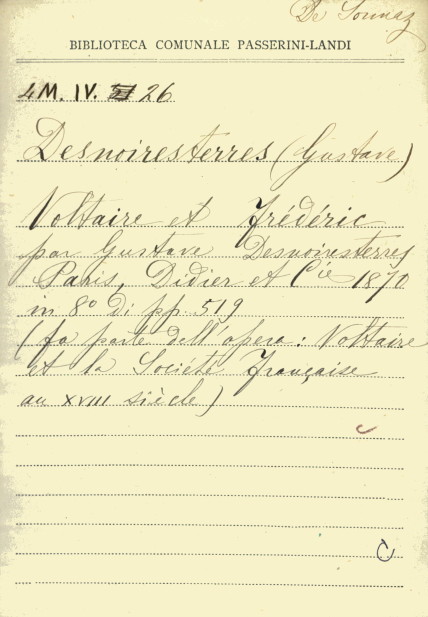 De Sonnaz
BIBLIOTECA COMUNALE PASSERINI-LANDI
4M. IV. 26
Desnoiresterres (Gustave)
Voltaire et Frédéric
par Gustave Desnoiresterres
Paris, Didier et Cie 1870
in 8º di pp. 519
(fa parte dell'opera: Voltaire
et la Société Française
au XVIII siècle)
C